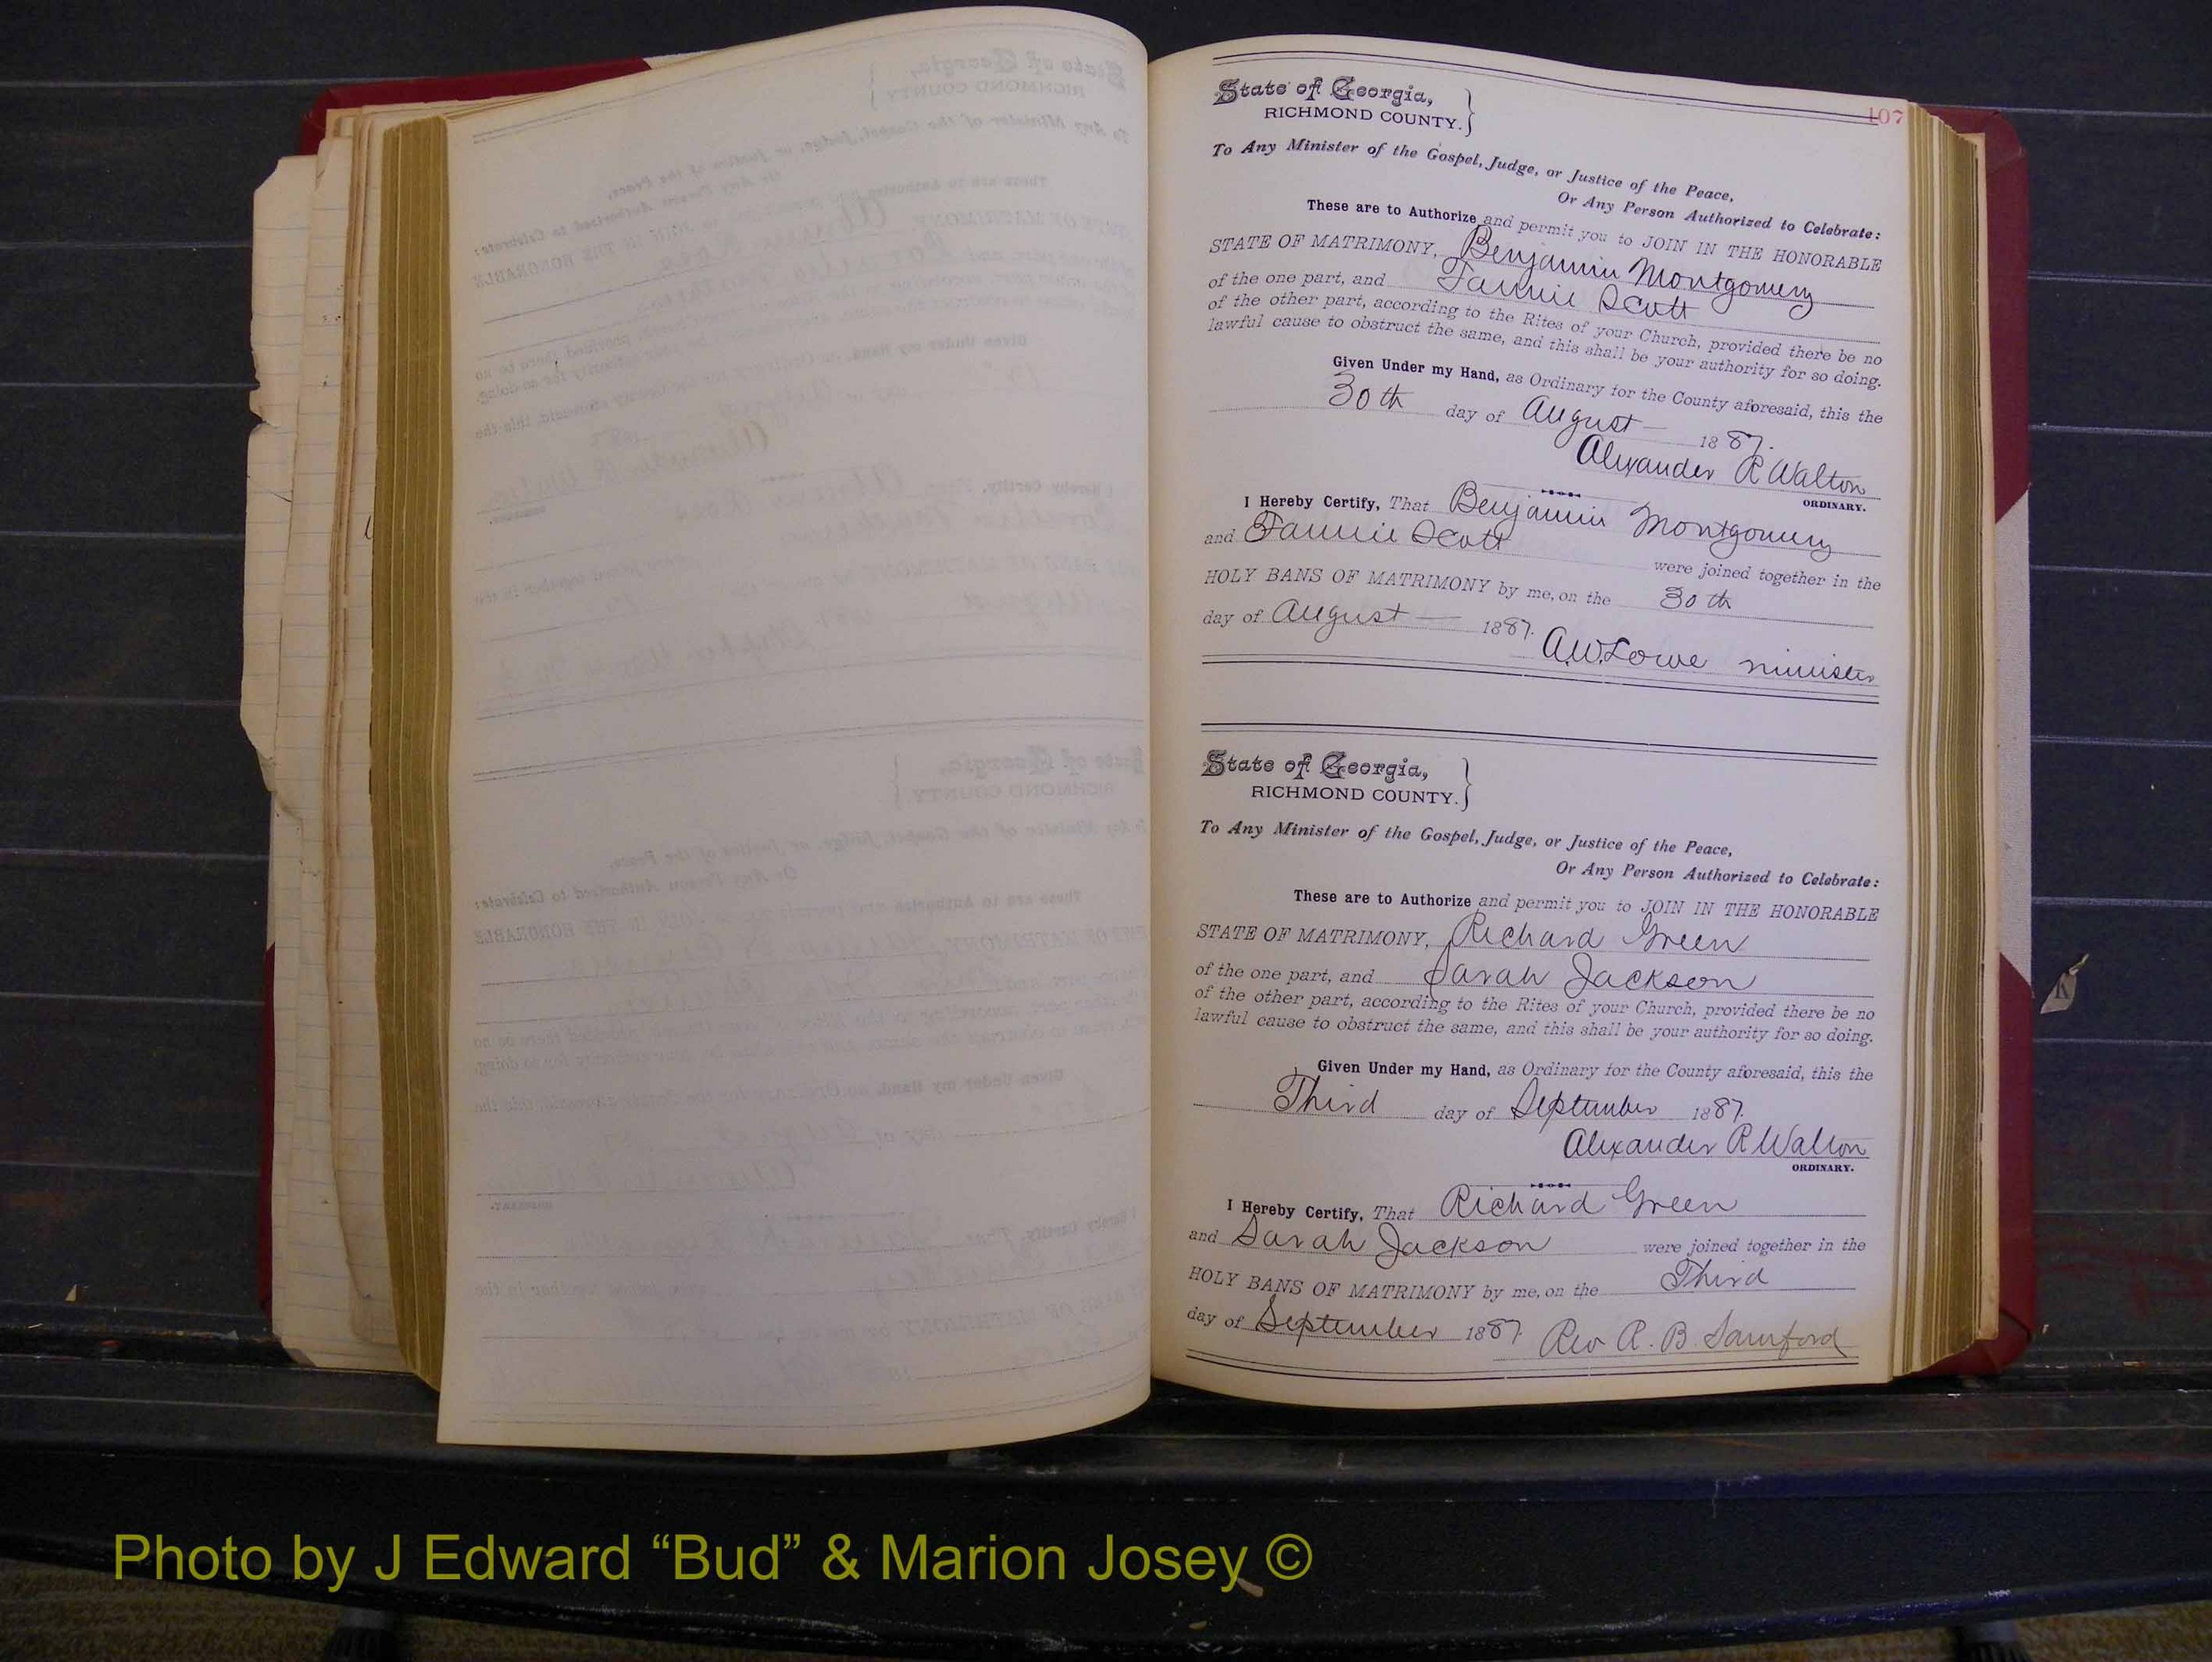 107
State of Georgia,
RICHMOND COUNTY.
To Any Minister of the Gospel, Judge, or Justice of the Peace,
Or Any Person Authorized to Celebrate:
These are to Authorize and permit you to JOIN IN THE HONORABLE
STATE OF MATRIMONY, Benjamin Montgomery
of the one part, and Fannie Scott
of the other part, according to the Rites of your Church, provided there be no
lawful cause to obstruct the same, and this shall be your authority for so doing.
Given Under my Hand, as Ordinary for the County aforesaid, this the
30th day of August 1887.
Alexander R Walton
ORDINARY.
I Hereby Certify, That Benjamin Montgomery
and Fannie Scott were joined together in the
HOLY BANS OF MATRIMONY by me, on the 30th
day of August 1887.
A.W. Lowe minister
State of Georgia,
RICHMOND COUNTY.
To Any Minister of the Gospel, Judge, or Justice of the Peace,
Or Any Person Authorized to Celebrate:
These are to Authorize and permit you to JOIN IN THE HONORABLE
STATE OF MATRIMONY, Richard Green
of the one part, and Sarah Jackson
of the other part, according to the Rites of your Church, provided there be no
lawful cause to obstruct the same, and this shall be your authority for so doing.
Given Under my Hand, as Ordinary for the County aforesaid, this the
Third day of September 1887.
Alexander R Walton
ORDINARY.
I Hereby Certify, That Richard Green
and Sarah Jackson were joined together in the
HOLY BANS OF MATRIMONY by me, on the Third
day of September 1887.
Rev R. B. Samford
K
Photo by J Edward “Bud” & Marion Josey ©